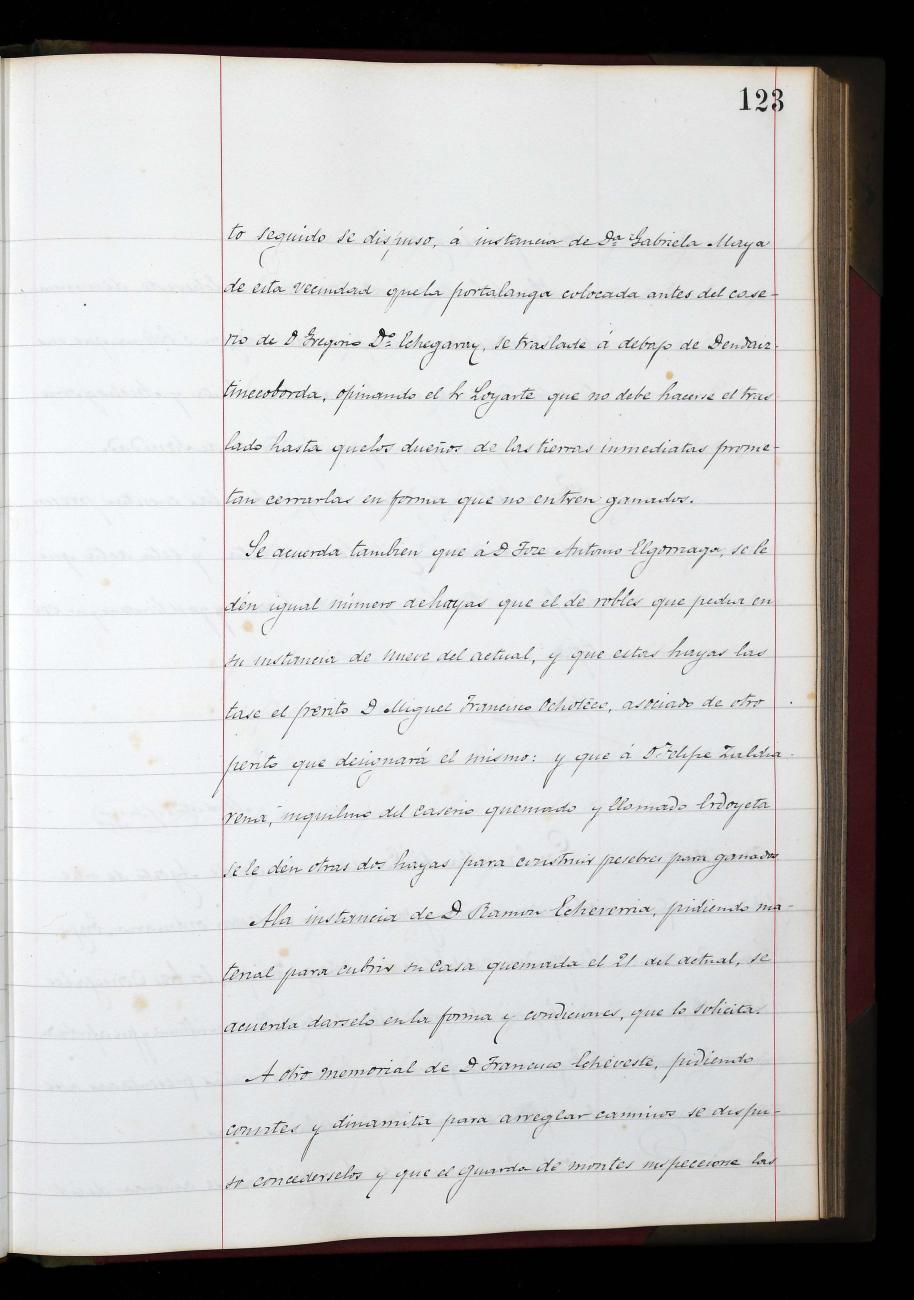 123
to seguido se dispuso, á instancia de Dª Gabriela Maya
de esta vecindad que la portalanga colocada antes del case-
rio de D Gregorio Dº Echegaray, se traslade á debajo de Dendaiz-
tinecoborda, opinando el Sr Loyarte que no debe hacerse el tras-
lado hasta que los dueños de las tierras inmediatas prome-
tan cerrarlas en forma que no entren ganados.
Se acuerda tambien que á D Joze Antonio Elgorriaga, se le
dén igual número de hayas que el de robles que pedia en
su instancia de nueve del actual, y que estas hayas las
tase el perito D Miguel Francisco Ochoteco, asociado de otro
perito que designará el mismo: y que á D. Felipe Zaldua-
rena, inquilino del caserio quemado y llamado Erdoyeta
se le dén otras dos hayas para construir pesebres para ganados
A la instancia de D Ramon Echeverria, pidiendo ma-
terial para cubrir su casa quemada el 21 del actual, se
acuerda darselo en la forma y condiciones, que lo solicita.
A otro memorial de D Francisco Echeveste, pidiendo
courtes y dinamita para arreglar caminos se dispu-
so concederselos y que el guarda de montes inspeccione las